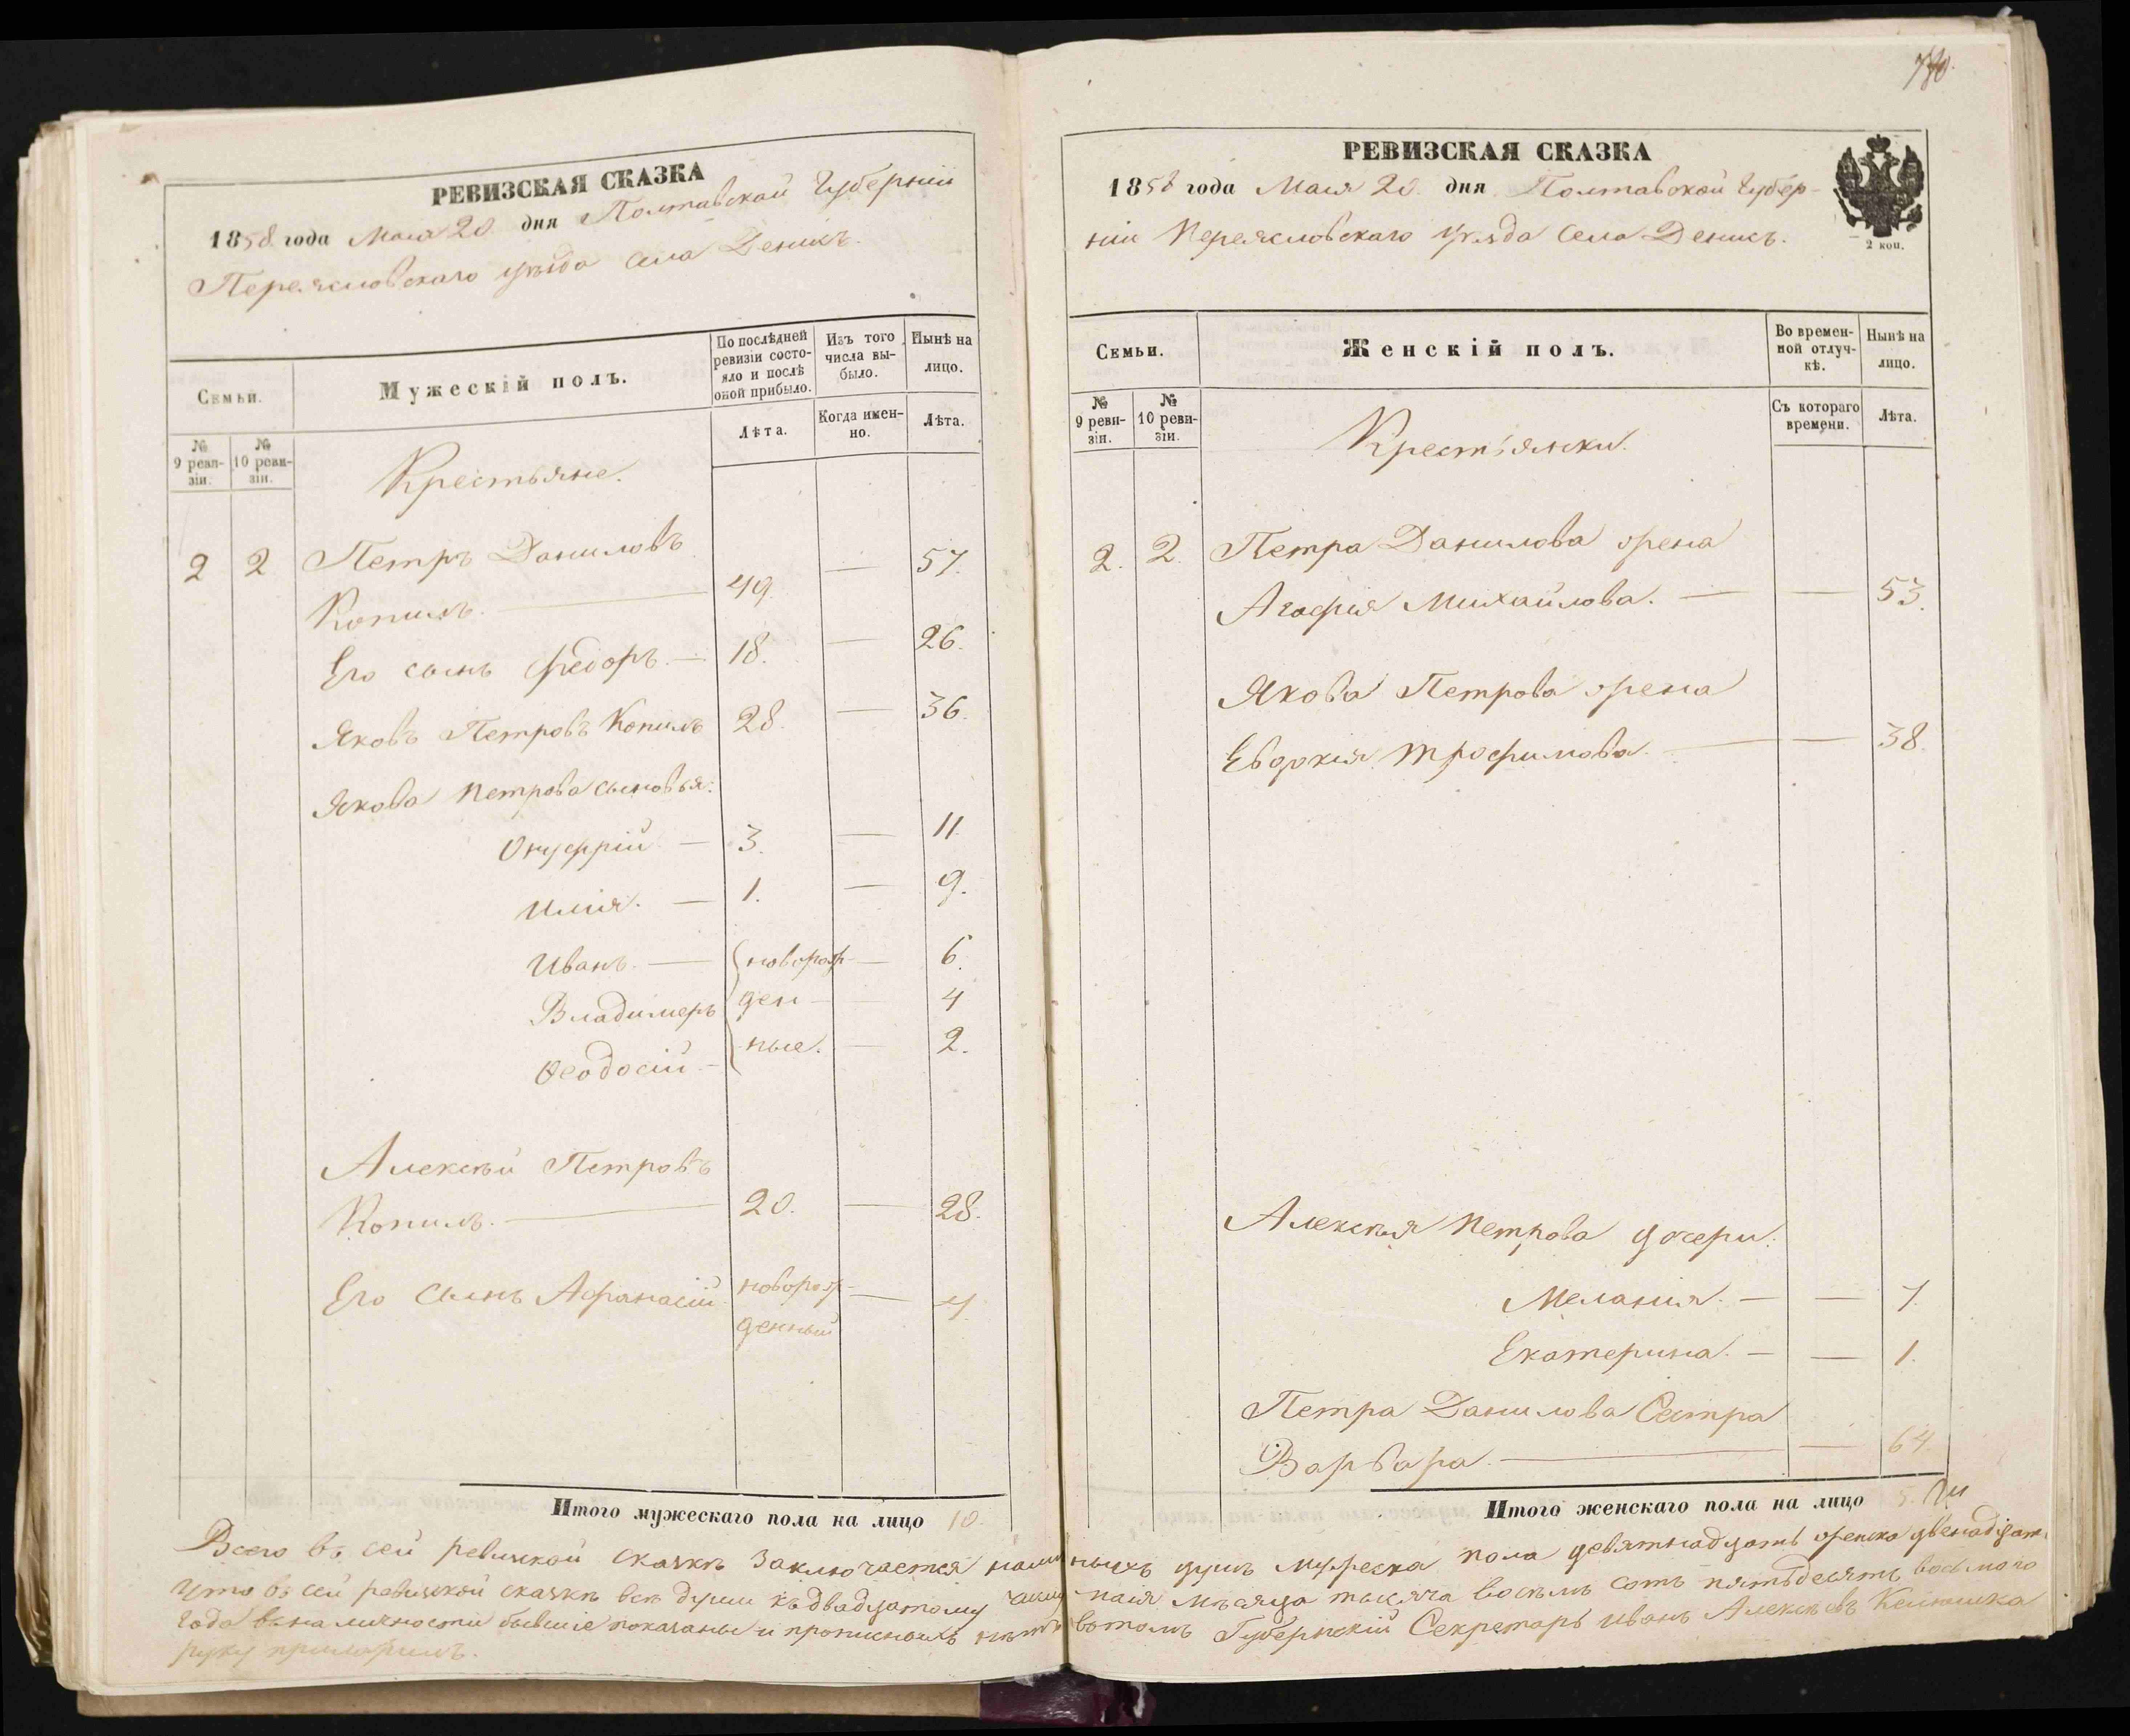 РЕВИЗСКАЯ СКАЗКА
1858 года Маія 20 дня Полтавской Губерніи
Переясловскаго уѣзда села Денисъ.
Семьи.
Мужескій полъ.
По послѣдней ревизіи состояло и послѣ оной прибыло.
Изъ того числа выбыло.
Нынѣ на лицо.
№ 9 ревизіи.
№ 10 ревизіи.
Крестьяне.
Лѣта.
Когда именно.
Лѣта.
2 2 Петръ Даниловъ
Копилъ. — 49. — 57.
Его сынъ Федоръ. — 18. — 26.
Яковъ Петровъ Копилъ 28. — 36.
Якова Петрова сыновья:
Онуфрій — 3. — 11.
Илія. — 1. — 9.
Иванъ. — новорож- — 6.
Владимеръ ден- — 4
Ѳеодосій — ные. — 2.
Алексѣй Петровъ
Копилъ. — 20. — 28.
Его сынъ Афанасій новорож- — 4.
денный
Итого мужескаго пола на лицо 10.
РЕВИЗСКАЯ СКАЗКА
1858 года Маія 20. дня Полтавской Губер-
ніи Переясловскаго уѣзда села Денисъ.
2 коп.
Семьи.
Женскій полъ.
Во временной отлучкѣ.
Нынѣ на лицо.
№ 9 ревизіи.
№ 10 ревизіи.
Крестьянки.
Съ котораго времени.
Лѣта.
2. 2. Петра Данилова жена
Агафія Михайлова. — — 53.
Якова Петрова жена
Евдокія Трофимова. — — 38.
Алексѣя Петрова дочери:
Меланія. — — 7.
Екатерина. — — 1.
Петра Данилова Сестра
Варвара. — — 64.
Итого женскаго пола на лицо 5.
Всего въ сей ревизской сказкѣ заключается наличныхъ душъ мужеска пола девятнадцать женска двенадцать
Что въ сей ревизской сказкѣ всѣ души къ двадцатому числу маія мѣсяца тысяча восемь сотъ пятьдесятъ восьмого
года въ наличности бывшіе показаны и прописныхъ нѣтъ въ томъ Губернскій Секретарь Иванъ Алексѣевъ
руку приложилъ.